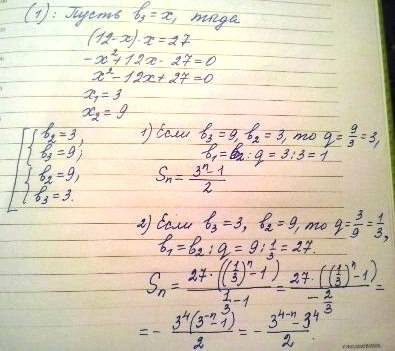 (1): Пусть b₃ = x, тогда
(12-x)·x = 27
-x²+12x-27=0
x²-12x+27=0
x₁=3
x₂=9
b₂=3,
b₃=9;
b₂=9,
b₃=3.
1) Если b₃=9, b₂=3, то q=9/3=3,
b₁=b₂:q=3:3=1
Sₙ=(3ⁿ-1)/2
2) Если b₃=3, b₂=9, то q=3/9=1/3,
b₁=b₂:q=9:1/3=27.
Sₙ=(27·((1/3)ⁿ-1))/(1/3-1)=(27·((1/3)ⁿ-1))/(-2/3)=
=-(3⁴(3⁻ⁿ-1))/2=-(3⁴⁻ⁿ-3⁴)/2